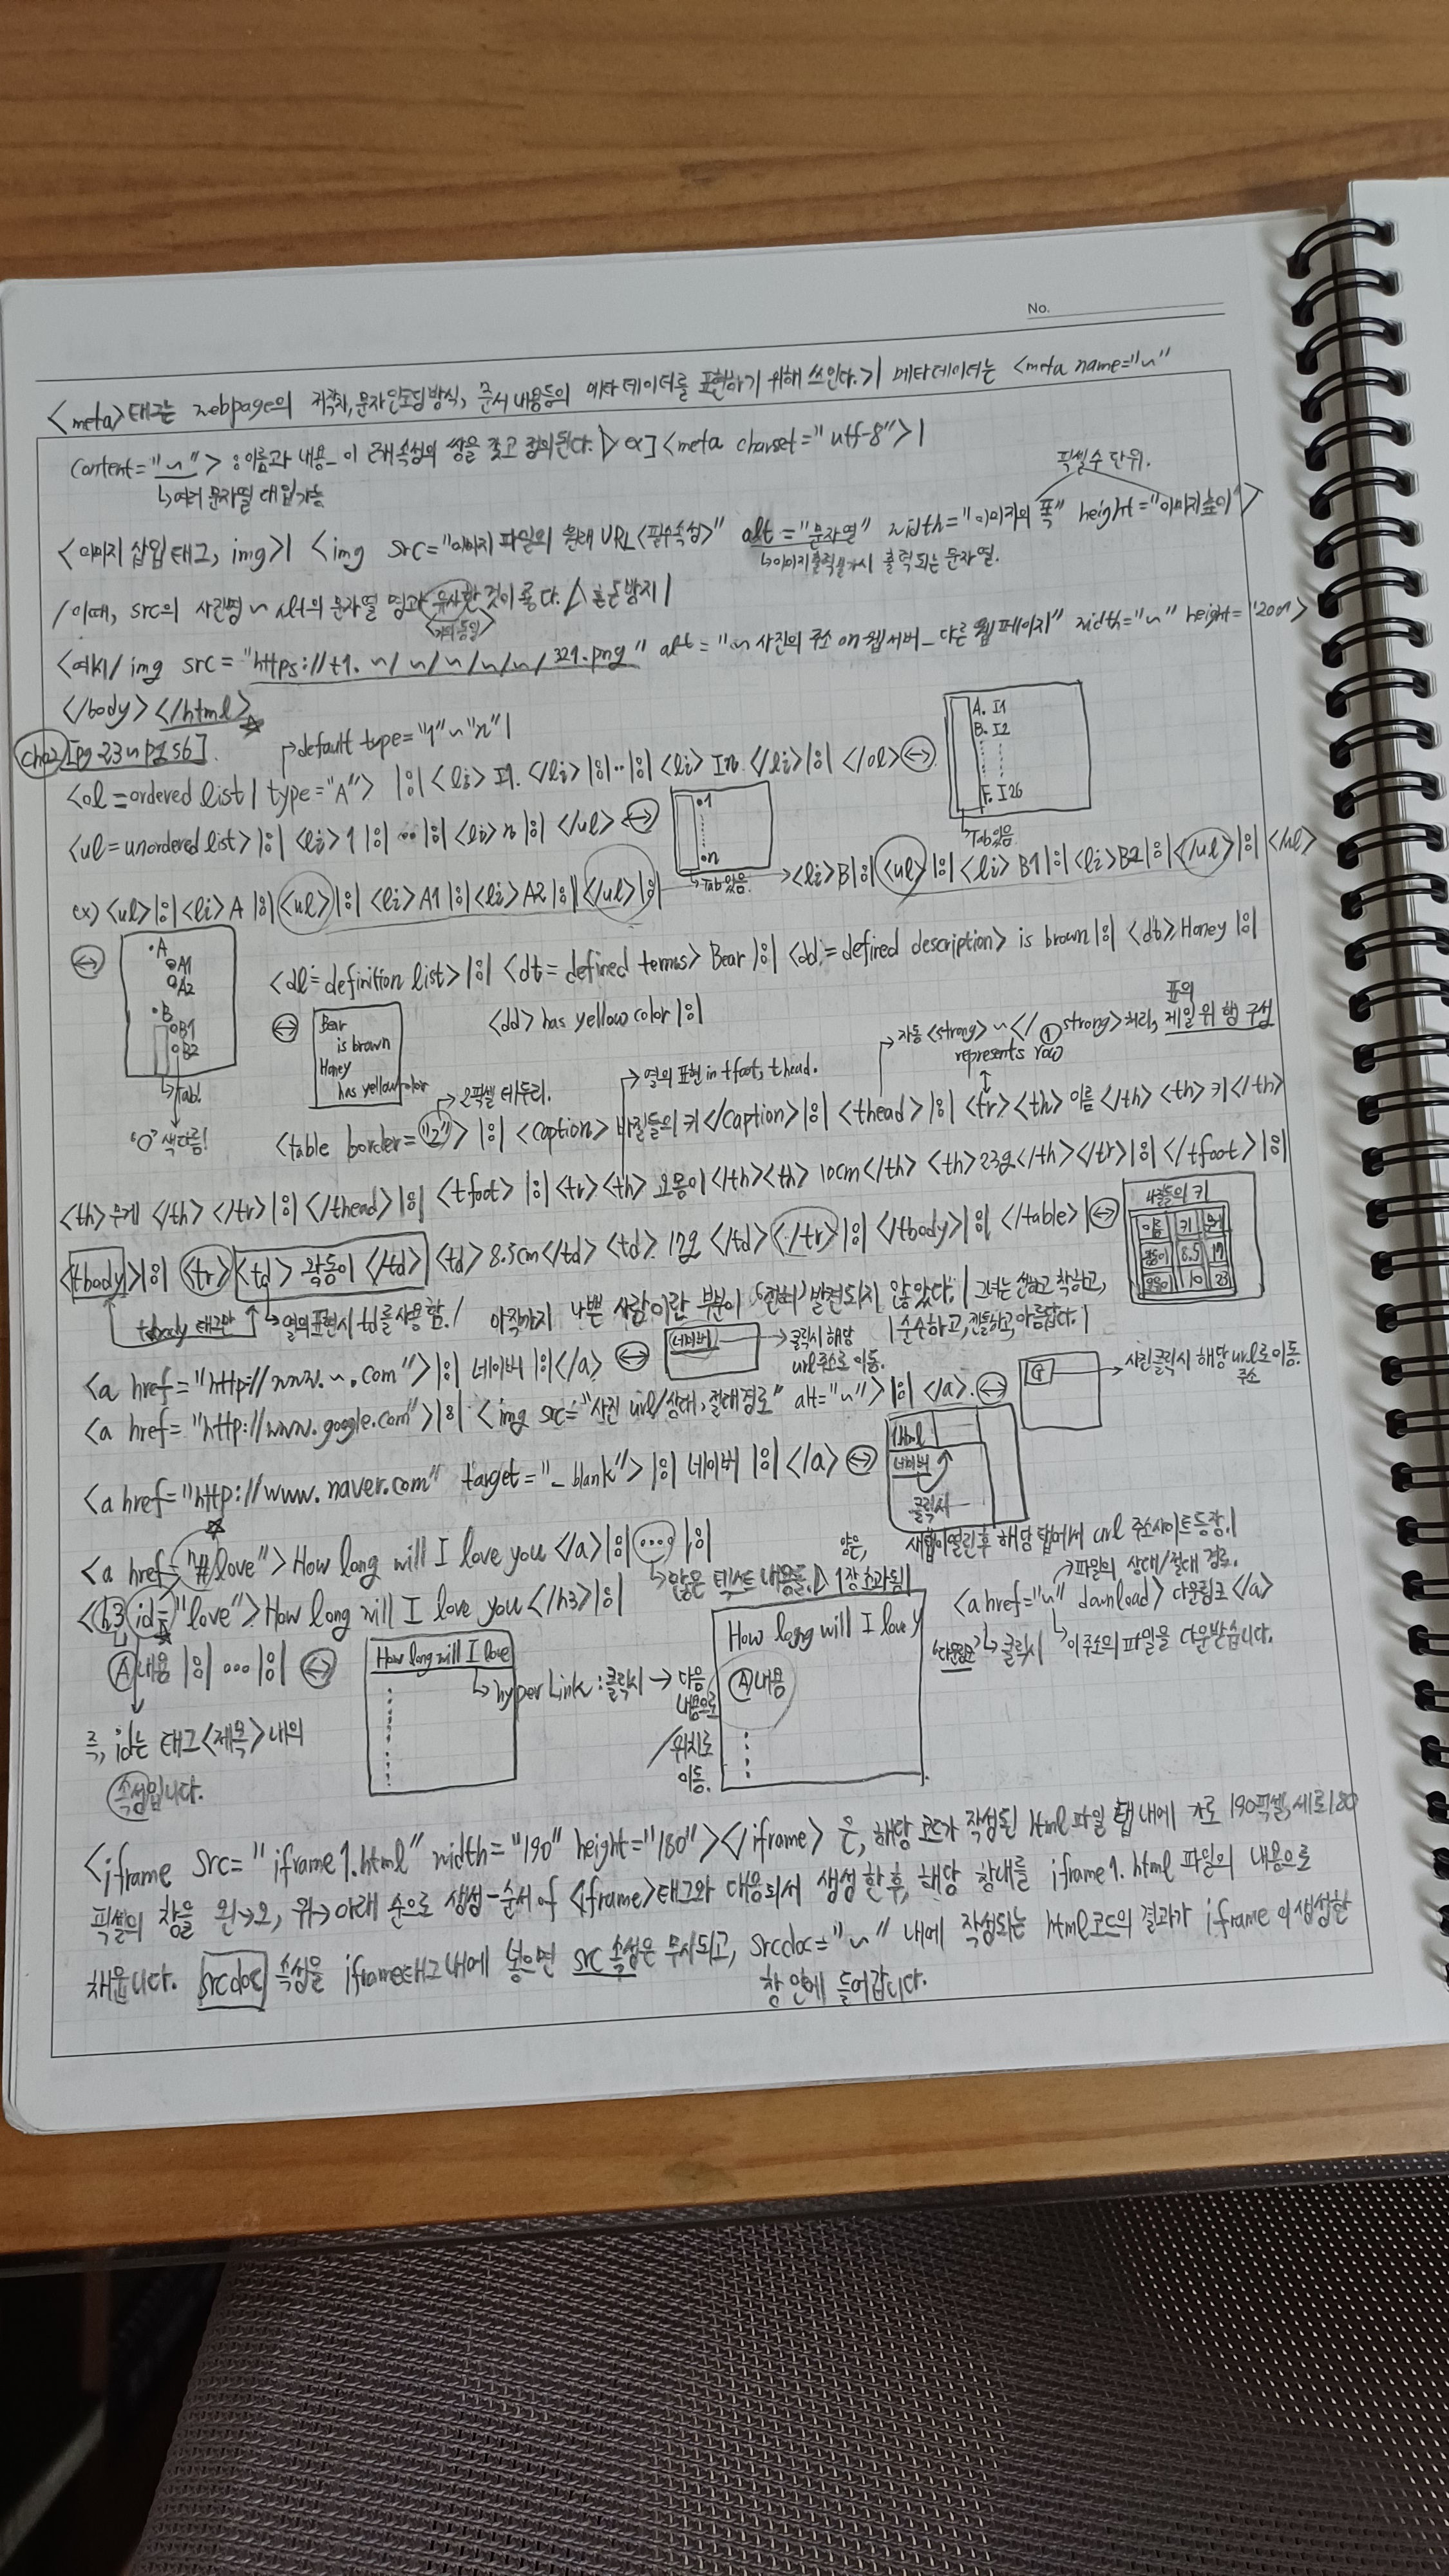 No.
<meta>태그는 webpage의 저작자, 문자인코딩방식, 문서내용등의 메타데이터를 표현하기 위해 쓰인다.>| 메타데이터는 <meta name="~"
content="~"> : 이름과 내용_이 2개 속성의 쌍을 갖고 정의된다. ▷ ex] <meta charset="utf-8">|
↳여러 문자열 대입가능
픽셀수 단위.
<이미지 삽입태그, img>| <img src="이미지 파일의 URL<필수속성>" alt="문자열" width="이미지의 폭" height="이미지높이">
↳이미지출력불가시 출력되는 문자열.
/이때, src의 사진명 ~ alt의 문자열 명과 유사한 것이 좋다. 혼돈방지|
<거의동일>
<예시/ img src="https://t1.~/~/~/~/~/321.png" alt="~사진의 주소 on 웹서버_다른 웹페이지" width="~" height="200">
</body></html>
ch02[pg23~pg56].
↱default type="1"~"n"|
<ol=ordered list| type="A"> |:| <li> I1. </li> |:|··|:| <li> In </li>|:| </ol> ↔
A. I1
B. I2
F. I26
Tab있음
<ul=unordered list>|:| <li>1 |:| ·· |:| <li>n |:| </ul> ↔
•1
•n
Tab있음
ex) <ul>|:|<li>A |:|<ul>|:|<li>A1|:|<li>A2|:|</ul>|:| → <li>B|:|<ul>|:|<li>B1|:|<li>B2|:|</ul>|:|</ul>
↔
•A
A1
A2
•B
B1
B2
Tab!
"O" 색다름!
<dl=definition list>|:| <dt=defined terms> Bear |:| <dd=defined description> is brown|:| <dt>Honey |:|
<dd>has yellow color|:|
↔
Bear
is brown
Honey
has yellow color
자동<strong>~</strong>처리, 표의 제일 위 행 구성
① represents row
열의 표현 in tfoot, thead.
2픽셀 테두리.
<table border="2"> |:| <caption> 바질들의 키</caption>|:| <thead>|:| <tr><th>이름</th> <th>키</th>
<th>무게 </th> </tr>|:| </thead>|:| <tfoot> |:|<tr><th> 요몽이</th><th> 10cm</th> <th>23g</th></tr>|:| </tfoot>|:|
<tbody>|:| <tr><td> 작동이 </td> <td>8.5cm</td> <td>17g </td></tr>|:| </tbody>|:| </table> |↔
들의 키
이름 키 무게
8.5 17
10 23
tbody 태그만 ↳열의표현시 td를 사용함./ 아직까지 나쁜 사람이란 부분이 전혀 발견되지 않았다.| 그녀는 선하고 착하고,
|순수하고, 진솔하고, 아름답다.|
<a href="http://www.~.com">|:| 네이버 |:|</a> ↔
네이버
→클릭시 해당 url주소로 이동.
<a href="http://www.google.com">|:| <img src="사진 url/상대, 절대경로" alt="~">|:| </a>. ↔
G
→사진클릭시 해당url로이동.
주소
<a href="http://www.naver.com" target="_blank">|:| 네이버 |:|</a> ↔
html
네이버
클릭시
새탭이열린후 해당 탭에서 url 주소사이트등장.|
<a href="#love">How long will I love you </a>|:|····|:|
↳많은 텍스트 내용들. ▷ 1장초과됨|
<h3 id="love">How long will I love you</h3>|:|
Ⓐ내용 |:| ··· |:| ↔
How long will I love
↳hyper Link : 클릭시 → 다음
내용으로
/위치로
이동.
How long will I love y
Ⓐ내용
↱파일의 상대/절대 경로.
<a href="~" download> 다운링크</a>
↳클릭시 ↳이 주소의 파일을 다운받습니다.
즉, id는 태그<제목>내의
속성입니다.
<iframe src="iframe1.html" width="190" height="180"></iframe> 은, 해당 코드가 작성된 html파일 탭 내에 가로 190픽셀, 세로180
픽셀의 창을 왼→오, 위→아래 순으로 생성-순서 of <iframe>태그와 대응되서 생성한후, 해당 창내를 iframe1.html 파일의 내용으로
채웁니다. srcdoc 속성을 iframe태그내에 넣으면 src 속성은 무시되고, srcdoc="~" 내에 작성되는 html코드의 결과가 iframe이 생성한
창 안에 들어갑니다.